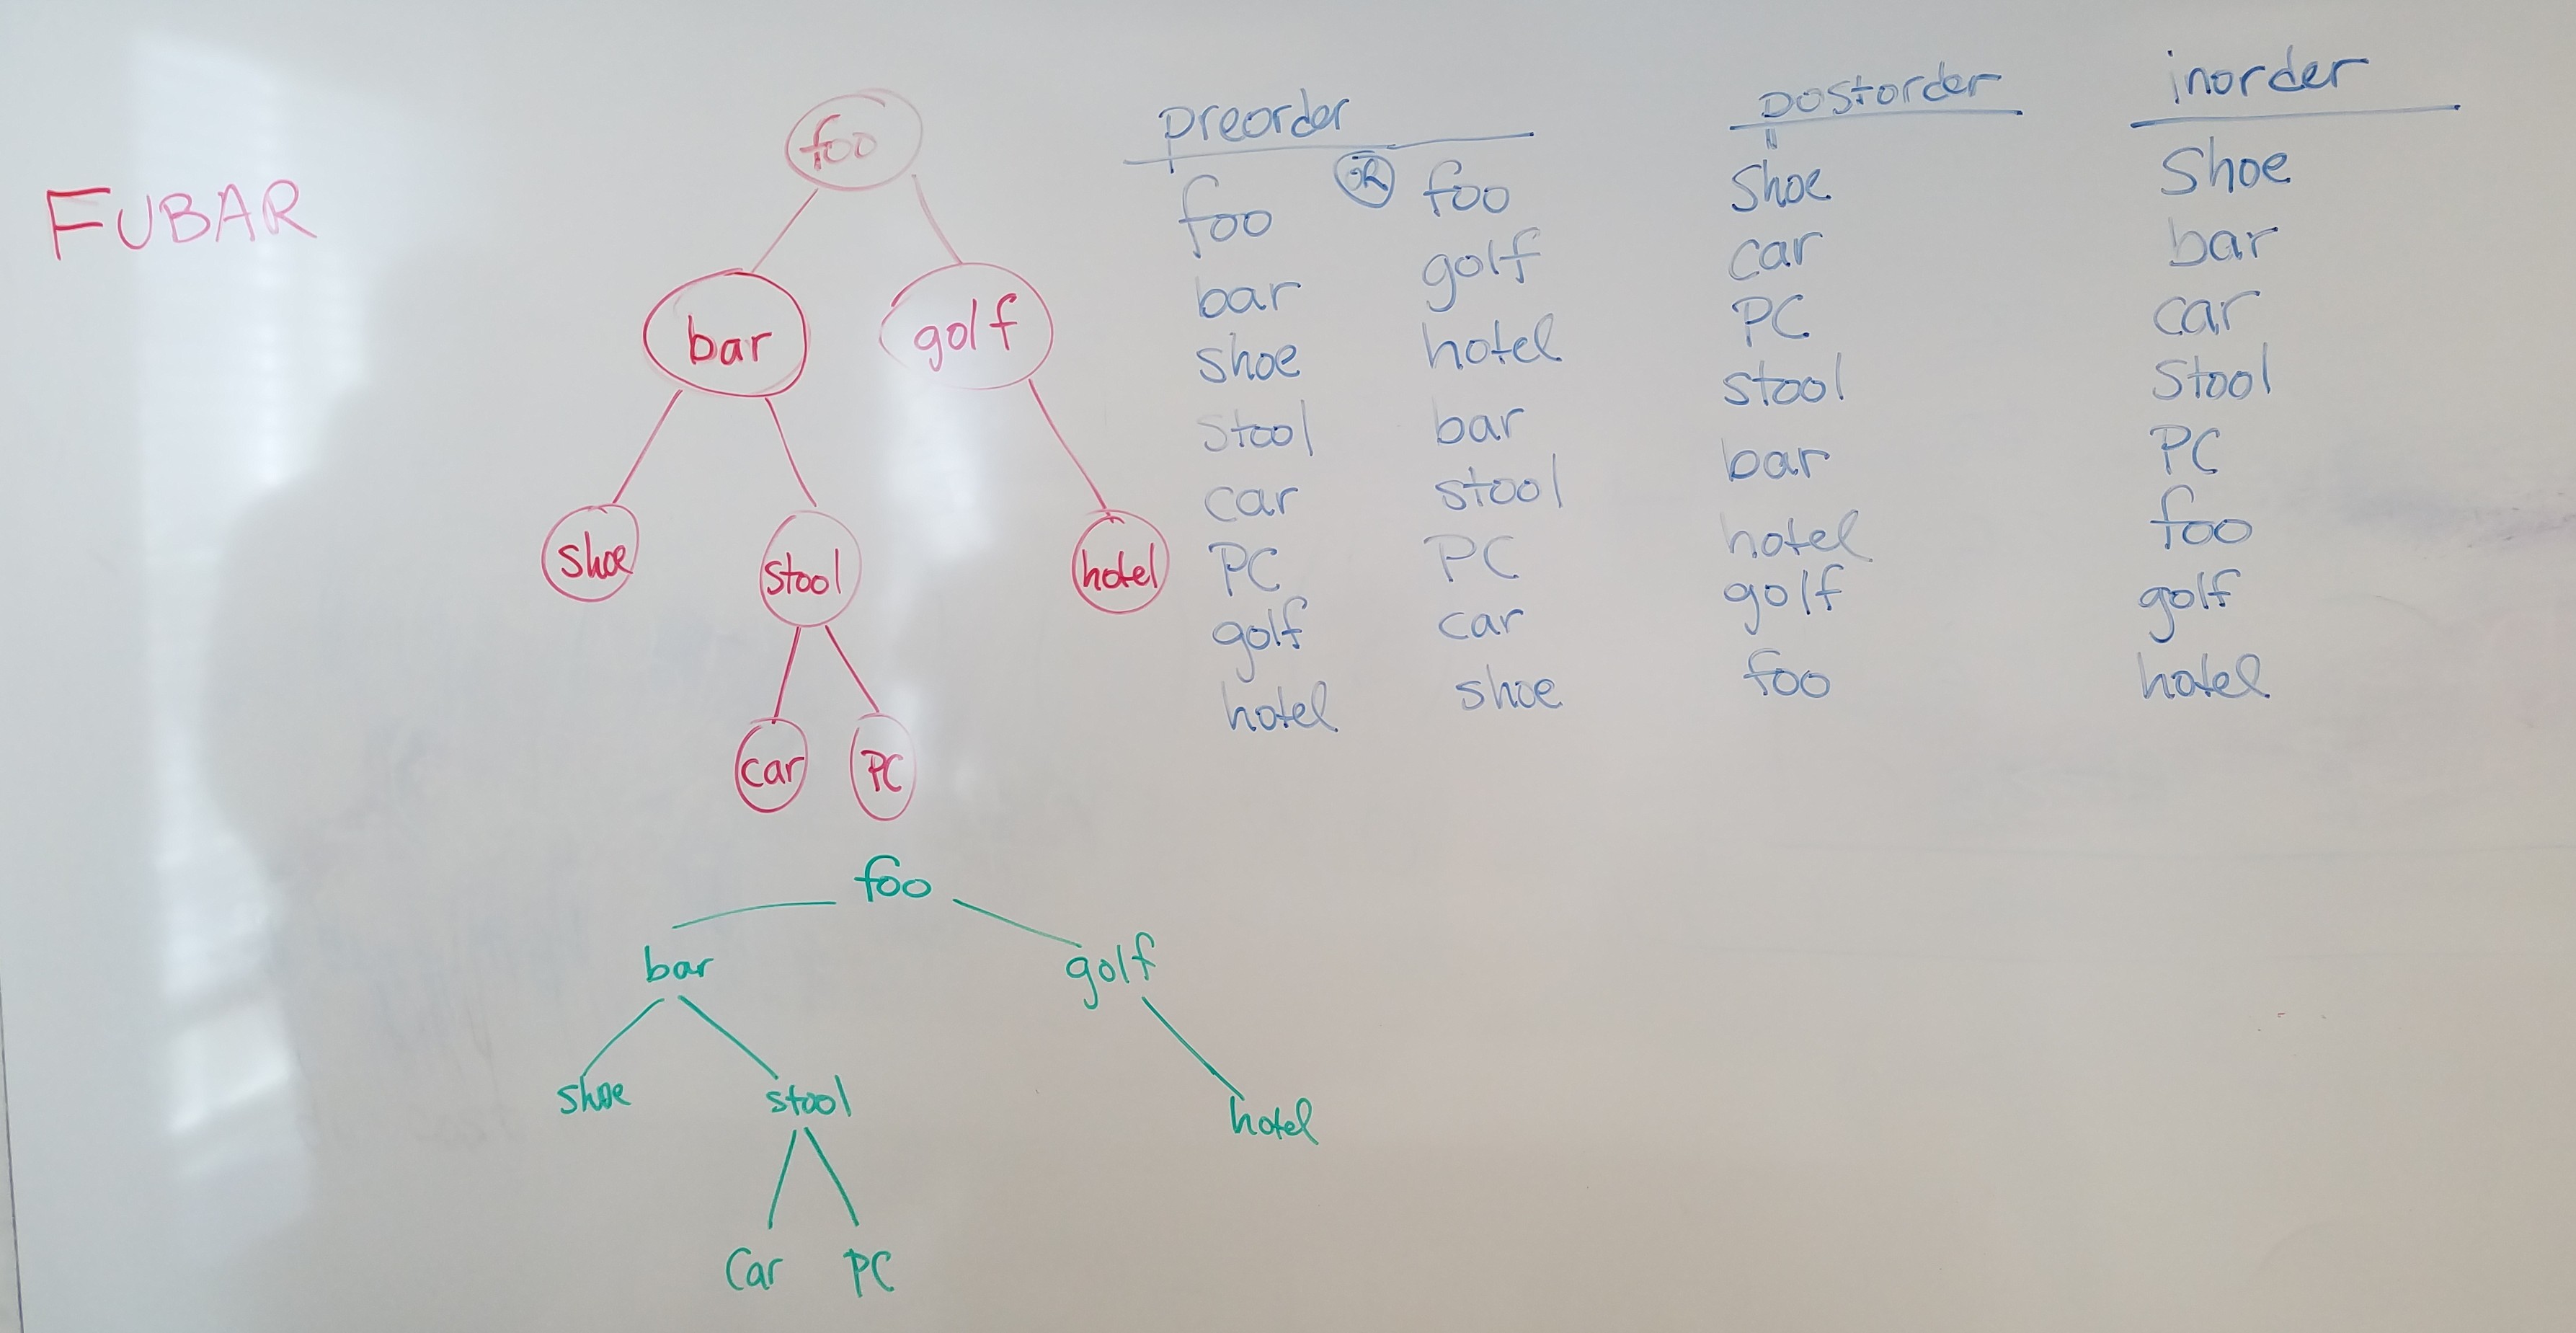 FUBAR
foo
bar golf
shoe stool hotel
car PC
foo
bar golf
shoe stool hotel
Car PC
preorder
foo
bar
shoe
stool
car
PC
golf
hotel
OR
foo
golf
hotel
bar
stool
PC
car
shoe
postorder
Shoe
car
PC
stool
bar
hotel
golf
foo
inorder
Shoe
bar
car
Stool
PC
foo
golf
hotel